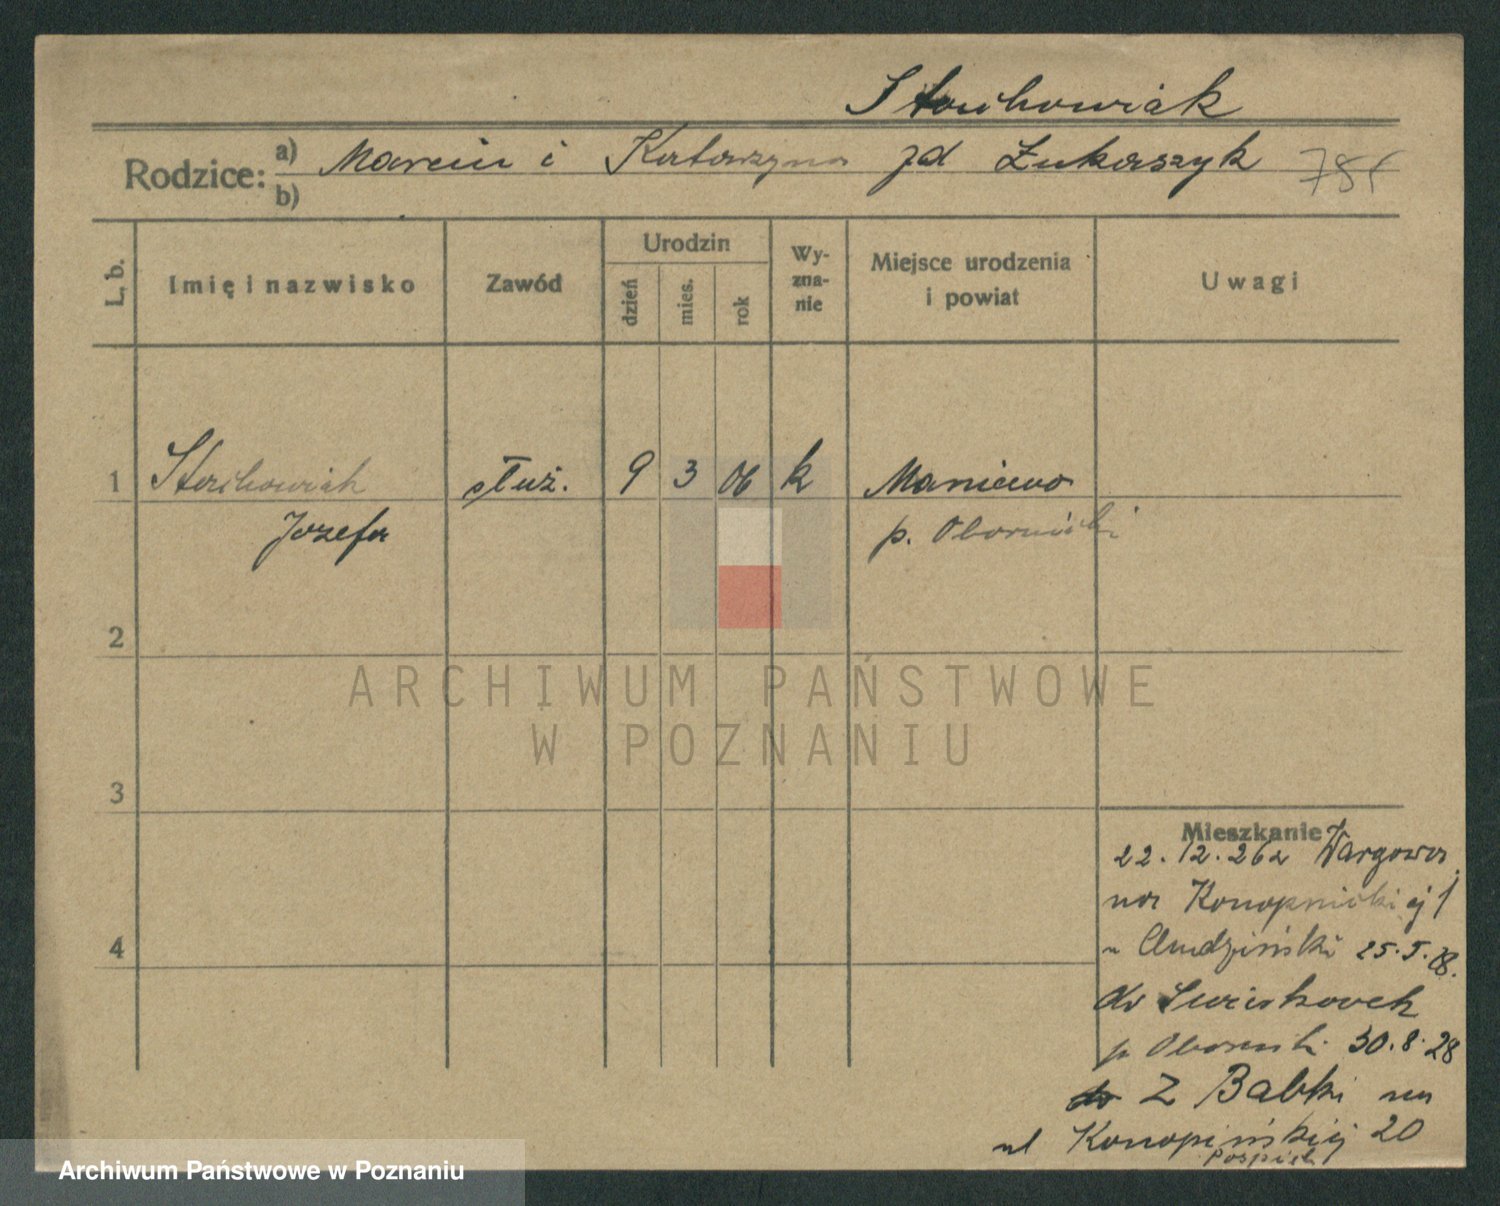 Stachowiak
Rodzice: a) Marcin i Katarzyna zd Łukaszyk 785
b)
L. b. Imię i nazwisko Zawód Urodzin dzień mies. rok Wy-zna-nie Miejsce urodzenia i powiat Uwagi
1 Stachowiak służ. 9 3 06 k Maniewo
Józefa p. Oborniki
2
ARCHIWUM PAŃSTWOWE
W POZNANIU
3
Mieszkanie
22.12.26 z Wargowa
na Konopnickiej 1
4 Chudziński 25.5.28.
do
p Oborniki 30.8.28
Z Babki na
ul Konopińskiej 20
Pospiech
Archiwum Państwowe w Poznaniu